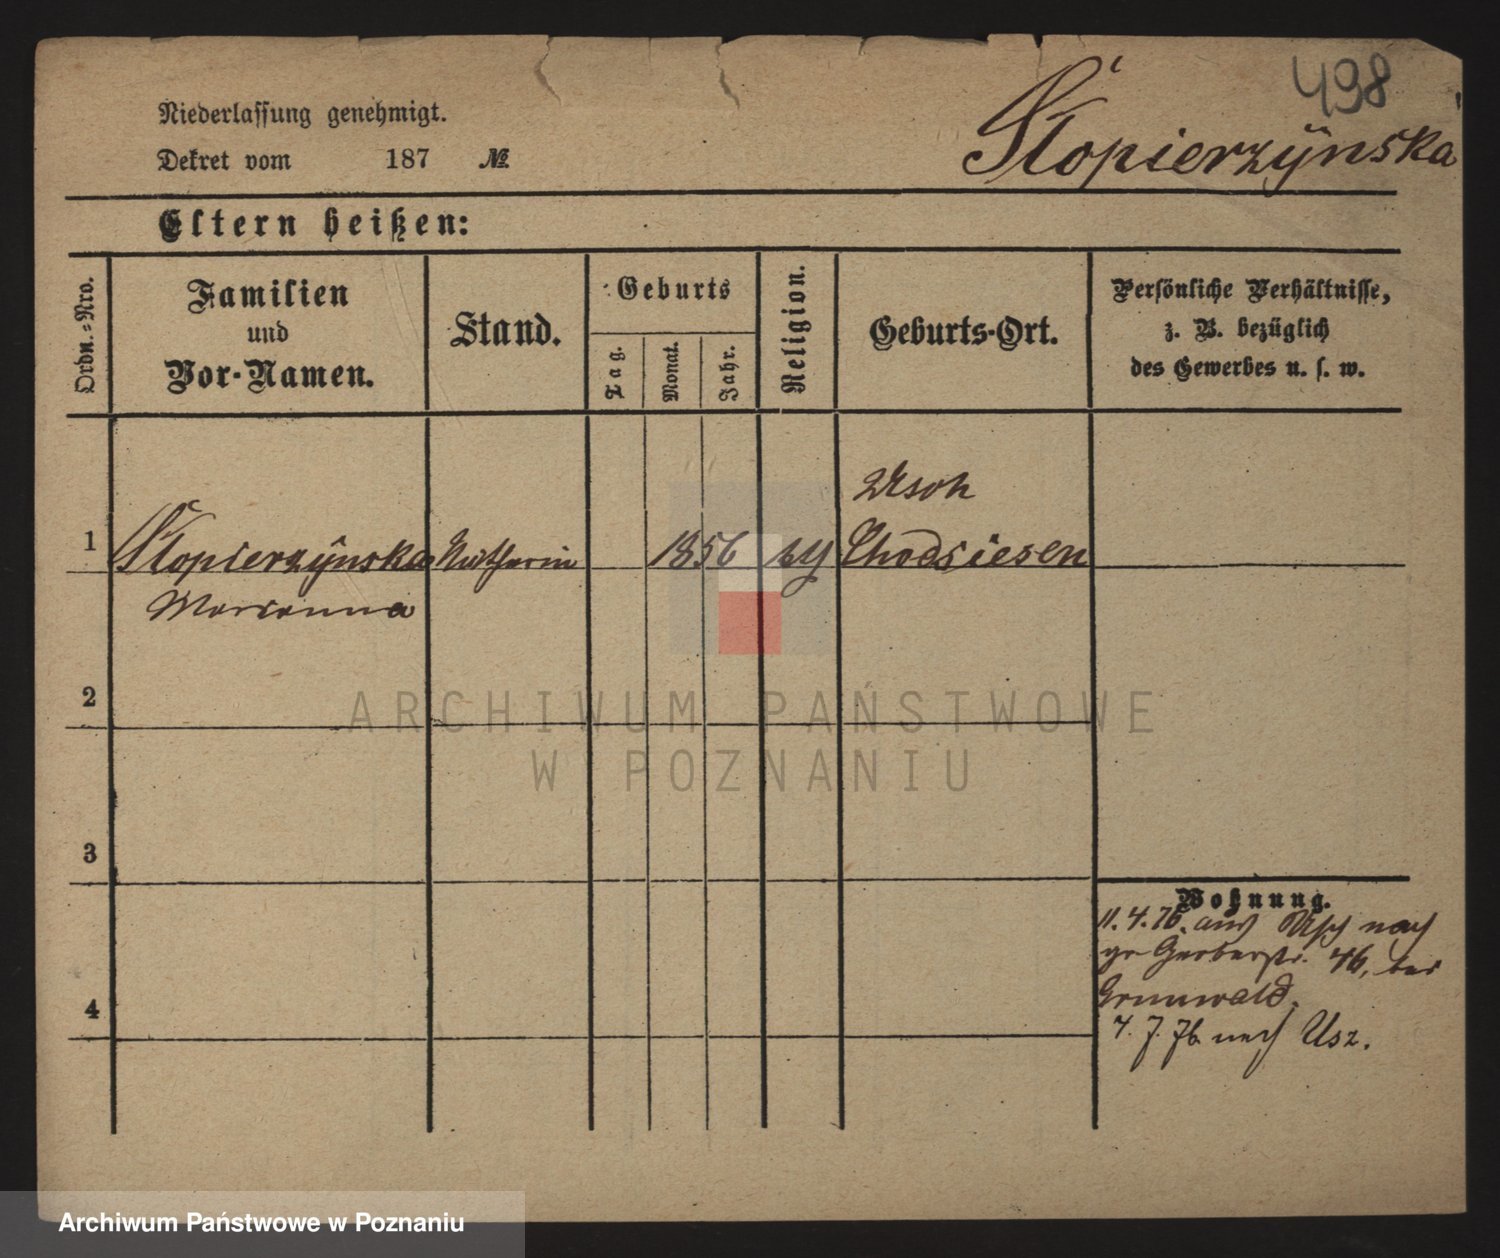 498
Niederlassung genehmigt.
Stopierzÿnska
Dekret vom 187 №
Eltern heißen:
Ordn.-Nro.
Familien
und
Vor-Namen.
Stand.
Geburts
Tag.
Monat.
Jahr.
Religion.
Geburts-Ort.
Persönliche Verhältnisse,
z. B. bezüglich
des Gewerbes u. s. w.
Usch
1 Stopierzÿnska 1856 Chodsiesen
Marianna
2
ARCHIWUM PAŃSTWOWE
W POZNANIU
3
Wohnung.
11.4.76. aus Usch nach
gr Gerberstr. 46, bei
Grunwald.
4
7.7.76 nach Usz.
Archiwum Państwowe w Poznaniu